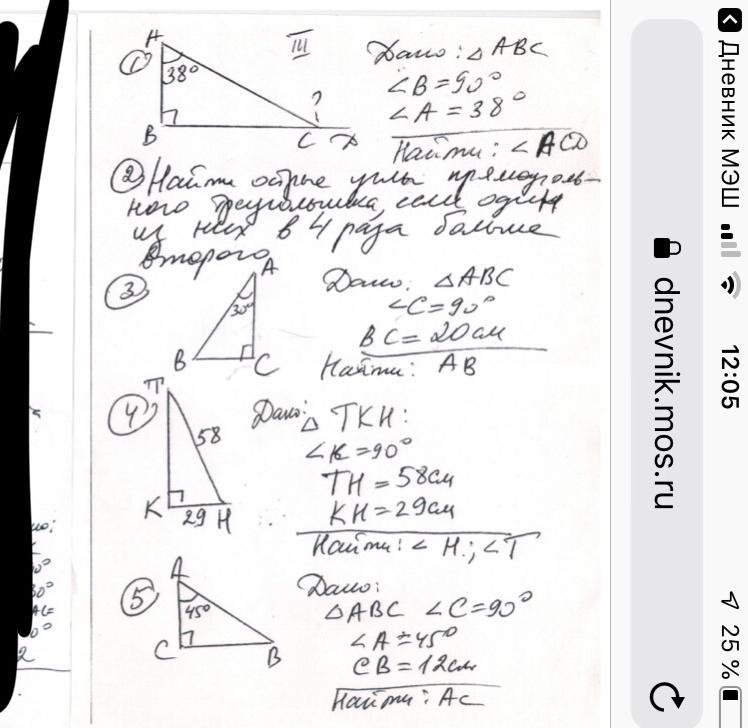 III
①
A
38°
B
C
D
?
Дано: △ ABC
∠B = 90°
∠A = 38°
Найти: ∠ ACD
② Найти острые углы прямоуголь-
ного треугольника, если один
из них в 4 раза больше
второго
③
A
30°
B
C
Дано: △ABC
∠C = 90°
BC = 20 см
Найти: AB
④
T
58
K
29
H
Дано: △ TKH:
∠K = 90°
TH = 58 см
KH = 29 см
Найти: ∠ H; ∠T
⑤
A
45°
C
B
Дано:
△ABC ∠C = 90°
∠A = 45°
CB = 12 см
Найти: AC
Дневник МЭШ
12:05
25 %
dnevnik.mos.ru